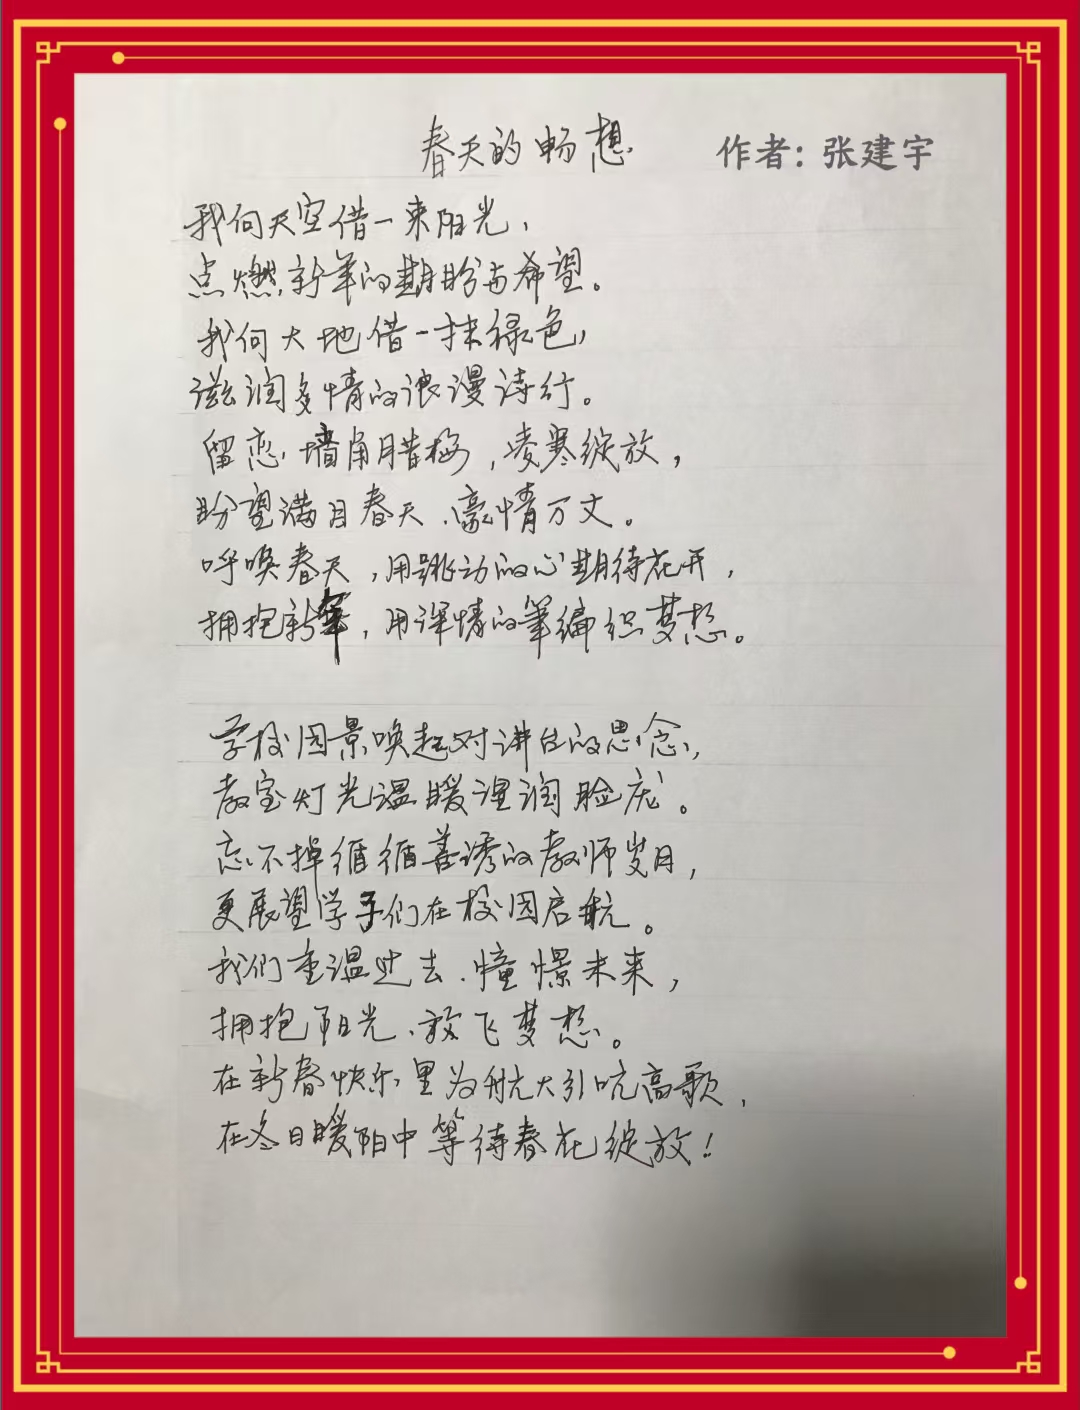 春天的畅想
作者：张建宇
我向天空借一束阳光，
点燃新年的期盼与希望。
我向大地借一抹绿色，
滋润多情的浪漫诗行。
留恋墙角腊梅，凌寒绽放，
盼望满目春天、豪情万丈。
呼唤春天，用跳动的心期待花开，
拥抱新年，用深情的笔编织梦想。
学校园景唤起对讲台的思念，
教室灯光温暖浸润脸庞。
忘不掉循循善诱的教师岁月，
更展望学子们在校园启航。
我们重温过去、憧憬未来，
拥抱阳光、放飞梦想。
在新春快乐里为航大引吭高歌，
在冬日暖阳中等待春花绽放！